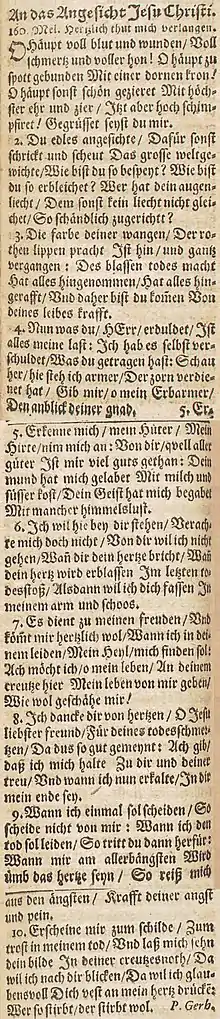 An das Angesicht Jesu Christi.
160. Mel. Hertzlich thut mich verlangen.
O Häupt voll blut und wunden/ Voll
schmertz und voller hon! O häupt zu
spott gebunden Mit einer dornen kron!
O häupt sonst schön gezieret Mit höch-
ster ehr und zier/ Itzt aber hoch schim-
pfiret! Gegrüsset seyst du mir.
2. Du edles angesichte/ Dafür sonst
schrickt und scheut Das grosse weltge-
wichte/ Wie bist du so bespeyt? Wie bist
du so erbleichet? Wer hat dein augen-
liecht/ Dem sonst kein liecht nicht glei-
chet/ So schändlich zugericht?
3. Die farbe deiner wangen/ Der ro-
then lippen pracht Ist hin/ und gantz
vergangen: Des blassen todes macht
Hat alles hingenommen/ Hat alles hin-
gerafft/ Und daher bist du kom̃en Von
deines leibes krafft.
4. Nun was du/ HErr/ erduldet/ Ist
alles meine last: Ich hab es selbst ver-
schuldet/ Was du getragen hast: Schau
her/ hie steh ich armer/ Der zorn verdie-
net hat/ Gib mir/ o mein Erbarmer/
Den anblick deiner gnad. 5. Er-
5. Erkenne mich/ mein Hüter/ Mein
Hirte/ nim mich an: Von dir/ qvell aller
güter Ist mir viel guts gethan: Dein
mund hat mich gelabet Mit milch und
süsser kost/ Dein Geist hat mich begabet
Mit mancher himmelslust.
6. Ich wil hie bey dir stehen/ Verach-
te mich doch nicht/ Von dir wil ich nicht
gehen/ Wañ dir dein hertze bricht/ Wañ
dein hertz wird erblassen Im letzten to-
desstoß/ Alsdann wil ich dich fassen In
meinem arm und schoos.
7. Es dient zu meinen freuden/ Und
köm̃t mir hertzlich wol/ Wann ich in dei-
nem leiden/ Mein Heyl/ mich finden sol:
Ach möcht ich/ o mein leben/ An deinem
creutze hier Mein leben von mir geben/
Wie wol geschähe mir!
8. Ich dancke dir von hertzen/ O Jesu
liebster freund/ Für deines todesschmer-
tzen/ Da dus so gut gemeynt: Ach gib/
daß ich mich halte Zu dir und deiner
treu/ Und wann ich nun erkalte/ In dir
mein ende sey.
9. Wann ich einmal sol scheiden/ So
scheide nicht von mir: Wann ich den
tod sol leiden/ So tritt du dann herfür:
Wann mir am allerbängsten Wird
ümb das hertze seyn/ So reiß mich
aus den ängsten/ Krafft deiner angst
und pein.
10. Erscheine mir zum schilde/ Zum
trost in meinem tod/ Und laß mich sehn
dein bilde In deiner creutzesnoth/ Da
wil ich nach dir blicken/ Da wil ich glau-
bensvoll Dich vest an mein hertz drücken:
Wer so stirbt/ der stirbt wol. P. Gerh.